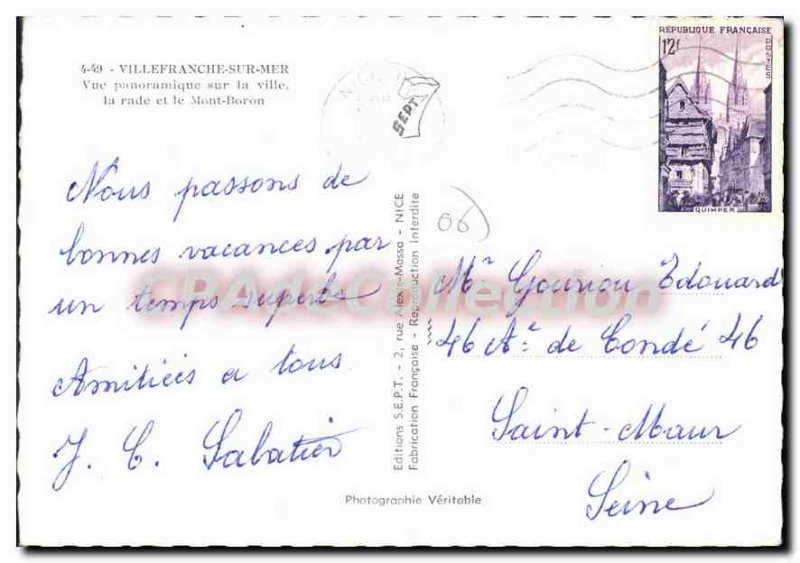 4-49 - VILLEFRANCHE-SUR-MER
Vue panoramique sur la ville,
la rade et le Mont-Boron
SEPT
Nous passons de
bonnes vacances par
un temps superbe
Amitiées a tous
J. C. Sabatier
Editions S.E.P.T. - 2, rue Alexis-Mossa - NICE
Fabrication Française - Reproduction Interdite
Photographie Véritable
RÉPUBLIQUE FRANÇAISE
12f
POSTES
QUIMPER
06
Mr Gouriou Edouard
46 Ae de Condé 46
Saint-Maur
Seine
CPAdeCollection